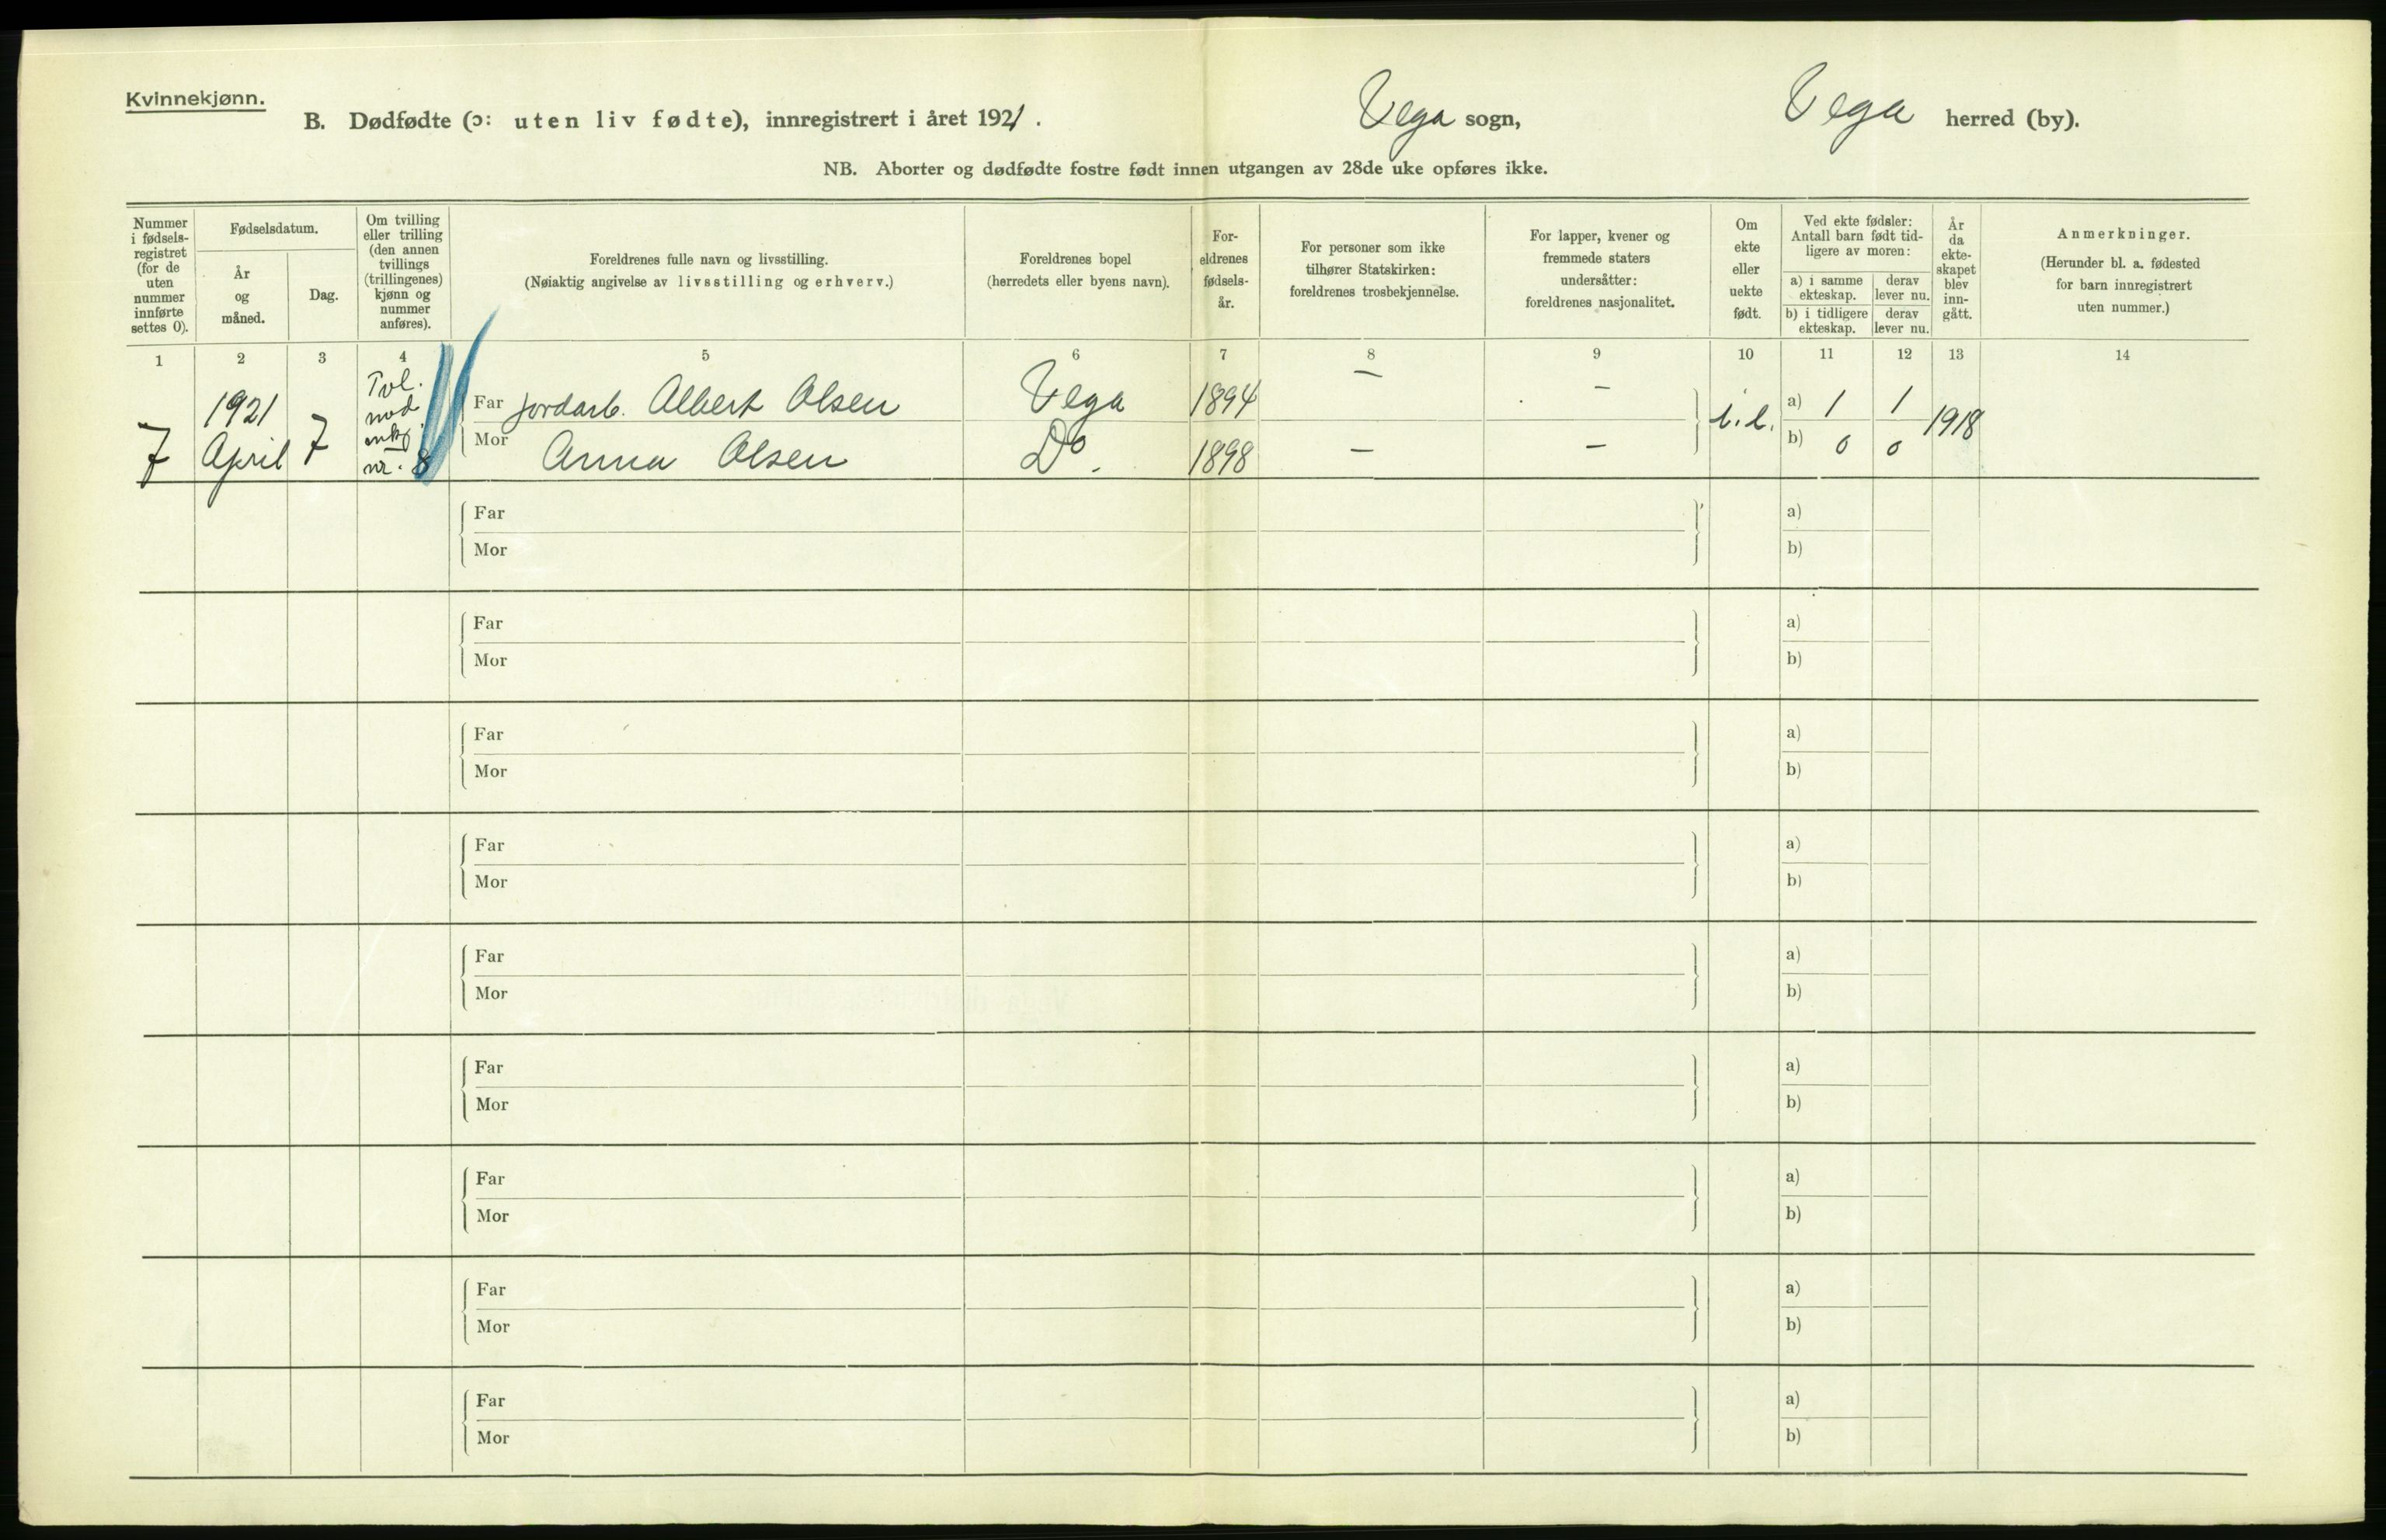 Kvinnekjønn.
B. Dødfødte (ɔ: uten liv fødte), innregistrert i året 1921. Vega sogn, Vega herred (by).
NB. Aborter og dødfødte fostre født innen utgangen av 28de uke opføres ikke.
Nummer i fødsels-registret (for de uten nummer innførte settes 0).
Fødselsdatum.
År og måned.
Dag.
Om tvilling eller trilling (den annen tvillings (trillingenes) kjønn og nummer anføres).
Foreldrenes fulle navn og livsstilling.
(Nøiaktig angivelse av livsstilling og erhverv.)
Foreldrenes bopel
(herredets eller byens navn).
For-eldrenes fødsels-år.
For personer som ikke tilhører Statskirken: foreldrenes trosbekjennelse.
For lapper, kvener og fremmede staters undersåtter: foreldrenes nasjonalitet.
Om ekte eller uekte født.
Ved ekte fødsler: Antall barn født tid-ligere av moren:
a) i samme ekteskap.
derav lever nu.
b) i tidligere ekteskap.
derav lever nu.
År da ekte-skapet blev inn-gått.
Anmerkninger.
(Herunder bl. a. fødested for barn innregistrert uten nummer.)
1 2 3 4 5 6 7 8 9 10 11 12 13 14
7 1921 April 7 Tvl. med nr. 8
Far jordarb. Albert Olsen Vega 1894 — — a) 1 1 1918
Mor Anna Olsen Do. 1898 — — b) 0 0
Far a)
Mor b)
Far a)
Mor b)
Far a)
Mor b)
Far a)
Mor b)
Far a)
Mor b)
Far a)
Mor b)
Far a)
Mor b)
Far a)
Mor b)
Far a)
Mor b)